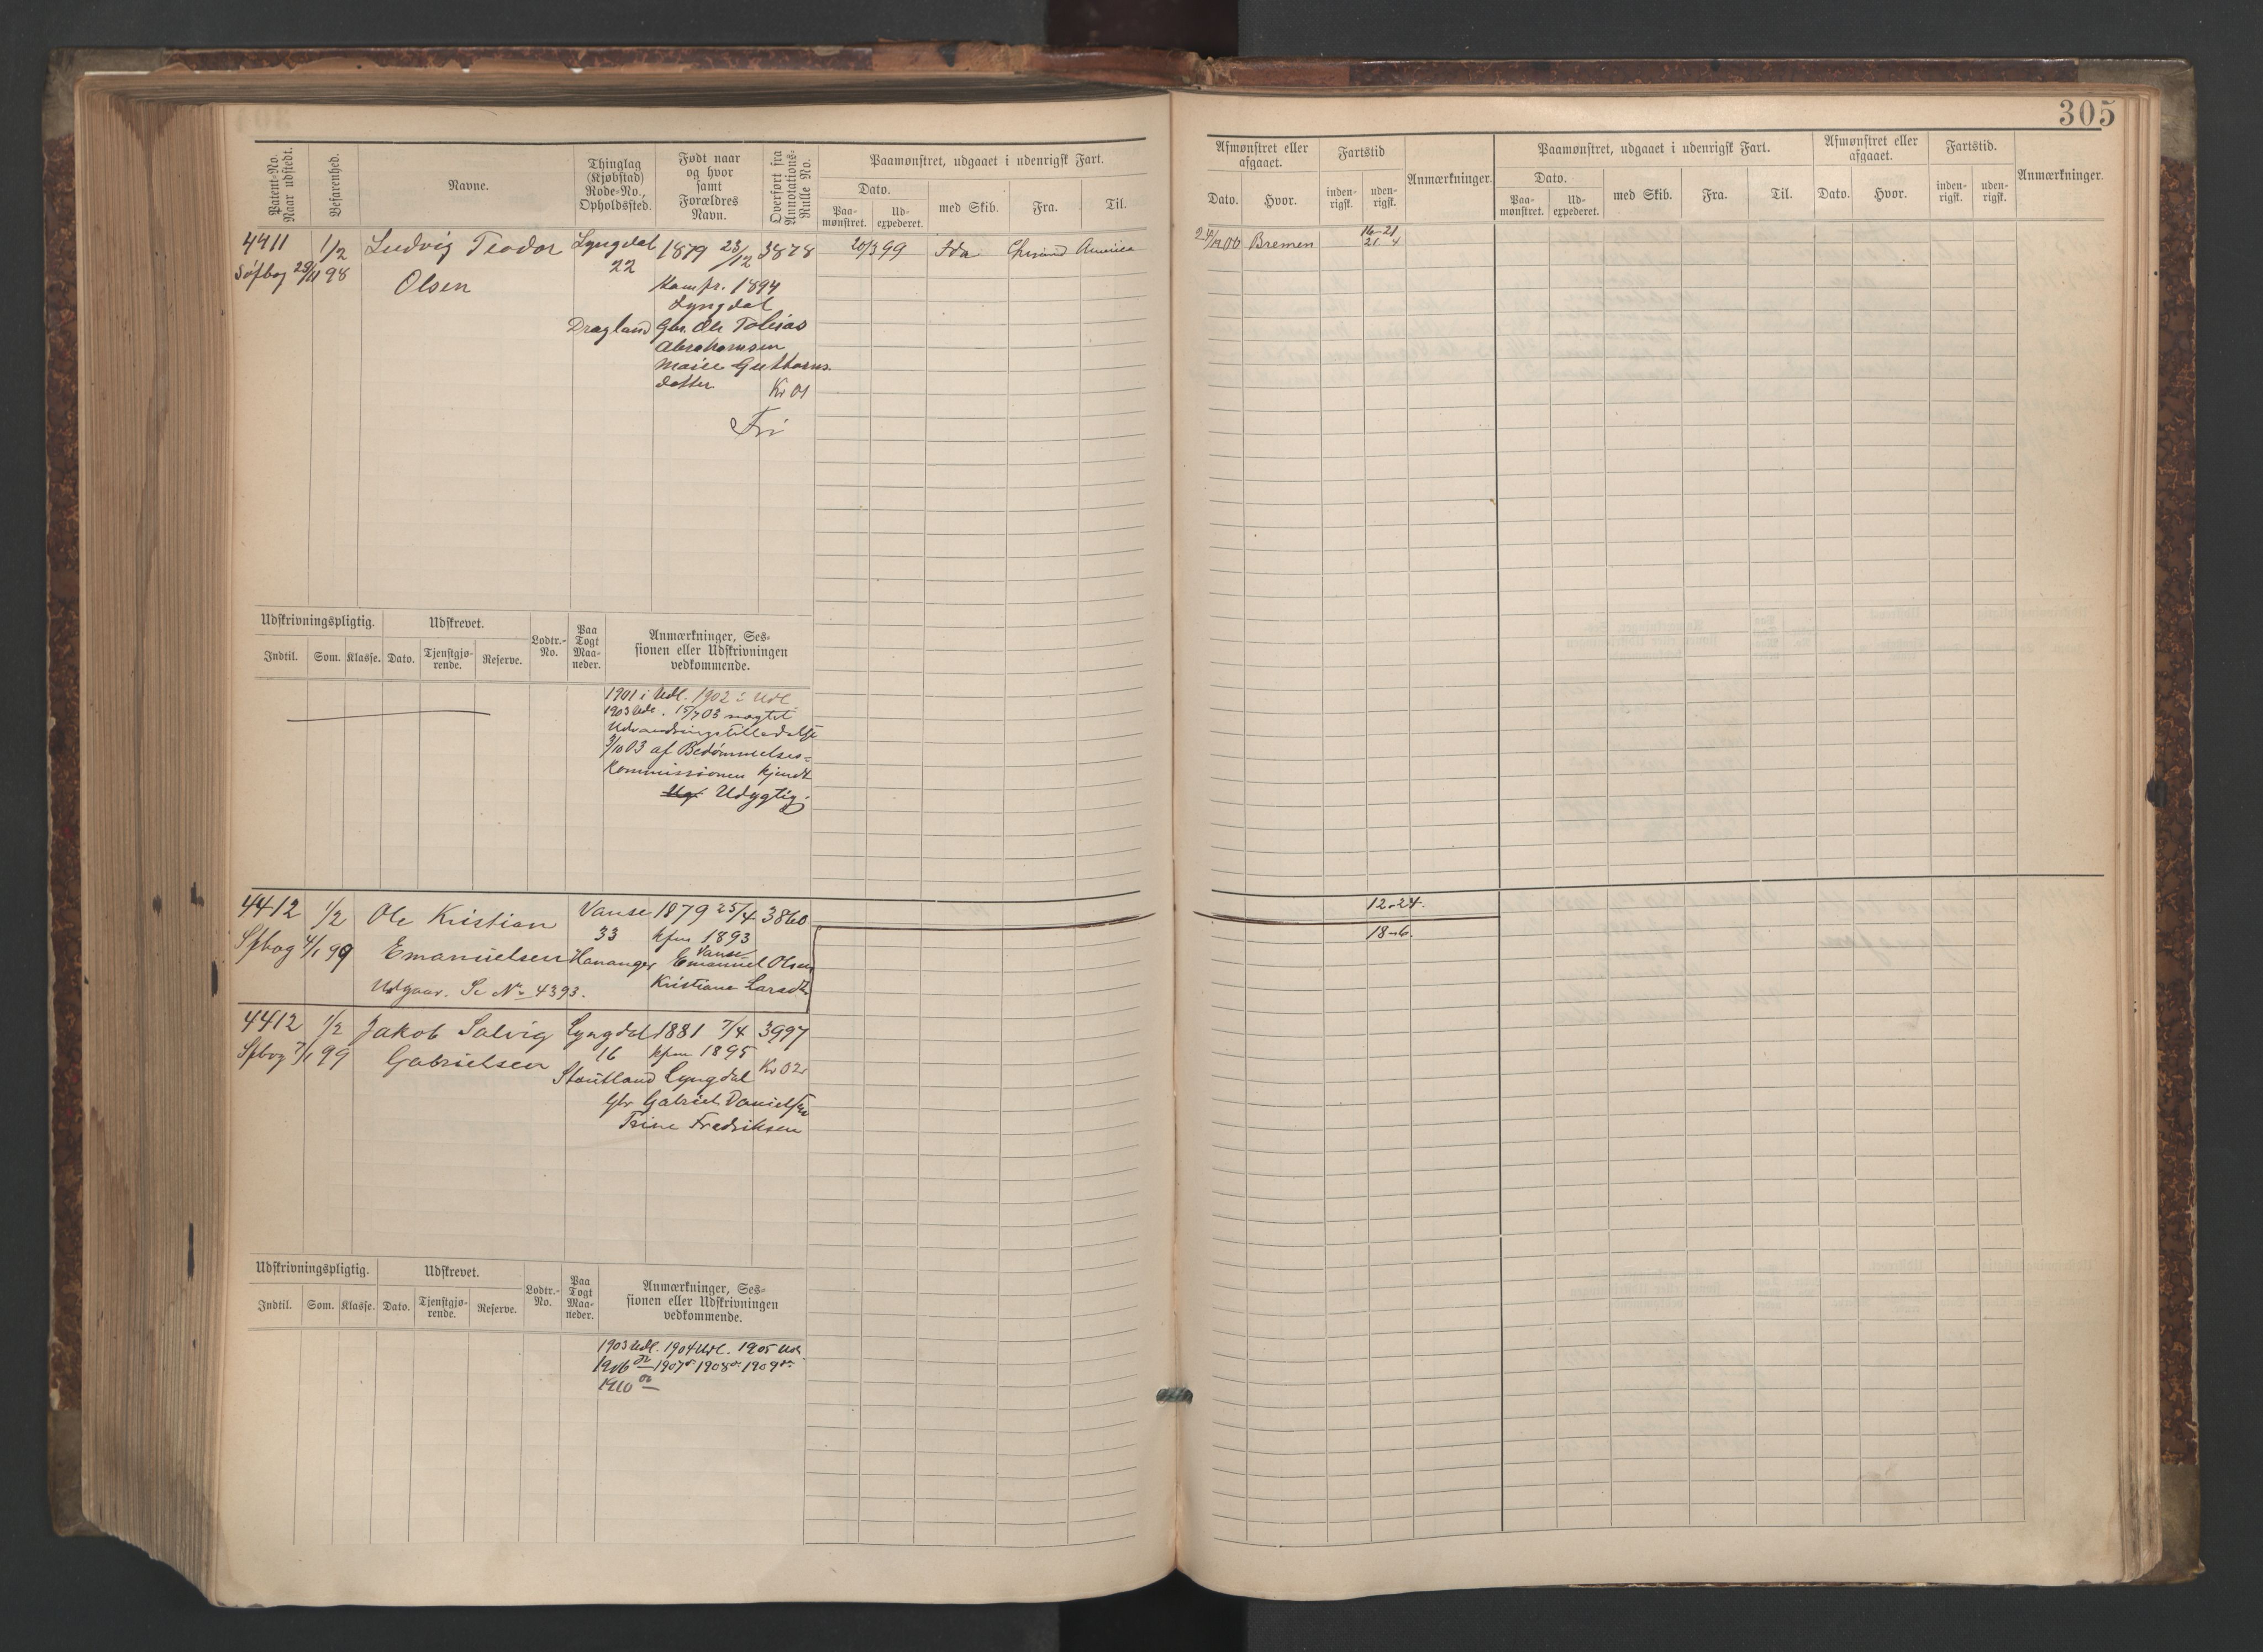 305
Patent-No. Naar udstedt.
Befarenhed.
Navne.
Thinglag (Kjøbstad) Rode-No., Opholdssted.
Født naar og hvor samt Forældres Navn.
Overført fra Annotations-Rulle No.
Paamønstret, udgaaet i udenrigsk Fart.
Dato.
Paa-mønstret.
Ud-expederet.
med Skib.
Fra.
Til.
Afmønstret eller afgaaet.
Dato.
Hvor.
Fartstid
inden-rigsk.
uden-rigsk.
Anmærkninger.
Paamønstret, udgaaet i udenrigsk Fart.
Dato.
Paa-mønstret.
Ud-expederet.
med Skib.
Fra.
Til.
Afmønstret eller afgaaet.
Dato.
Hvor.
Fartstid.
inden-rigsk.
uden-rigsk.
Anmærkninger.
4411 1/2 Ludvig Teodor Lyngdal 1879 23/12 3878 20/3 99 Ida America
Bremen 16-21
21 4
Søfbog 29/11 98 Olsen 22
Konfr. 1894
Lyngdal
Dragland Gbr. Ole Tobias
Abrahamsen
Marie Guttorms
datter Kr 01
Fri
Udskrivningspligtig.
Indtil. Som. Klasse.
Udskrevet.
Dato. Tjenstgjø-rende. Reserve.
Lodtr.-No.
Paa Togt Maa-neder.
Anmærkninger, Ses-
sionen eller Udskrivningen
vedkommende.
1901 i Udl. 1902 i Udl
1903 Udl. 15/7 03 nægtet
Udvandringstilladelse
3/10 03 af Bedømmelses-
kommissionen kjendt
Udygtig.
4412 1/2 Ole Kristian Vanse 1879 25/4 3860
12-24.
33 kfm 1893
18-6.
Sfbog 4/1 99 Emanuelsen Hananger Vanse
Emanuel Olsen
Udgaar. Se No 4393. Kristiane Larsdt.
4412 1/2 Jakob Salvig Lyngdal 1881 7/4 3997
Sfbog 7/1 99 Gabrielsen 16 kfm 1895
Lyngdal Kr 02
Gbr Gabriel Danielsen
Trine Fredriksen
Udskrivningspligtig.
Indtil. Som. Klasse.
Udskrevet.
Dato. Tjenstgjø-rende. Reserve.
Lodtr.-No.
Paa Togt Maa-neder.
Anmærkninger, Ses-
sionen eller Udskrivningen
vedkommende.
1903 Udl. 1904 Udl. 1905 Udl
1906 do 1907 do 1908 do 1909 do
1910 do